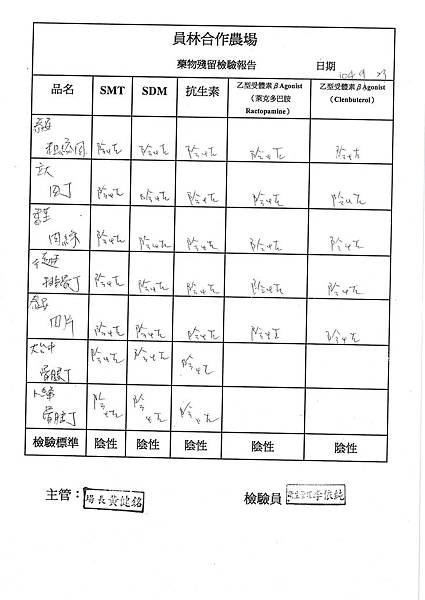 員林合作農場
藥物殘留檢驗報告
日期 104.9.23
品名 SMT SDM 抗生素 乙型受體素βAgonist（萊克多巴胺 Ractopamine） 乙型受體素βAgonist（Clenbuterol）
陰性 陰性 陰性 陰性 陰性
肉丁 陰性 陰性 陰性 陰性 陰性
肉絲 陰性 陰性 陰性 陰性 陰性
陰性 陰性 陰性 陰性 陰性
肉片 陰性 陰性 陰性 陰性 陰性
陰性 陰性 陰性
陰性 陰性 陰性
檢驗標準 陰性 陰性 陰性 陰性 陰性
主管： 場長黃健銘
檢驗員 李依純